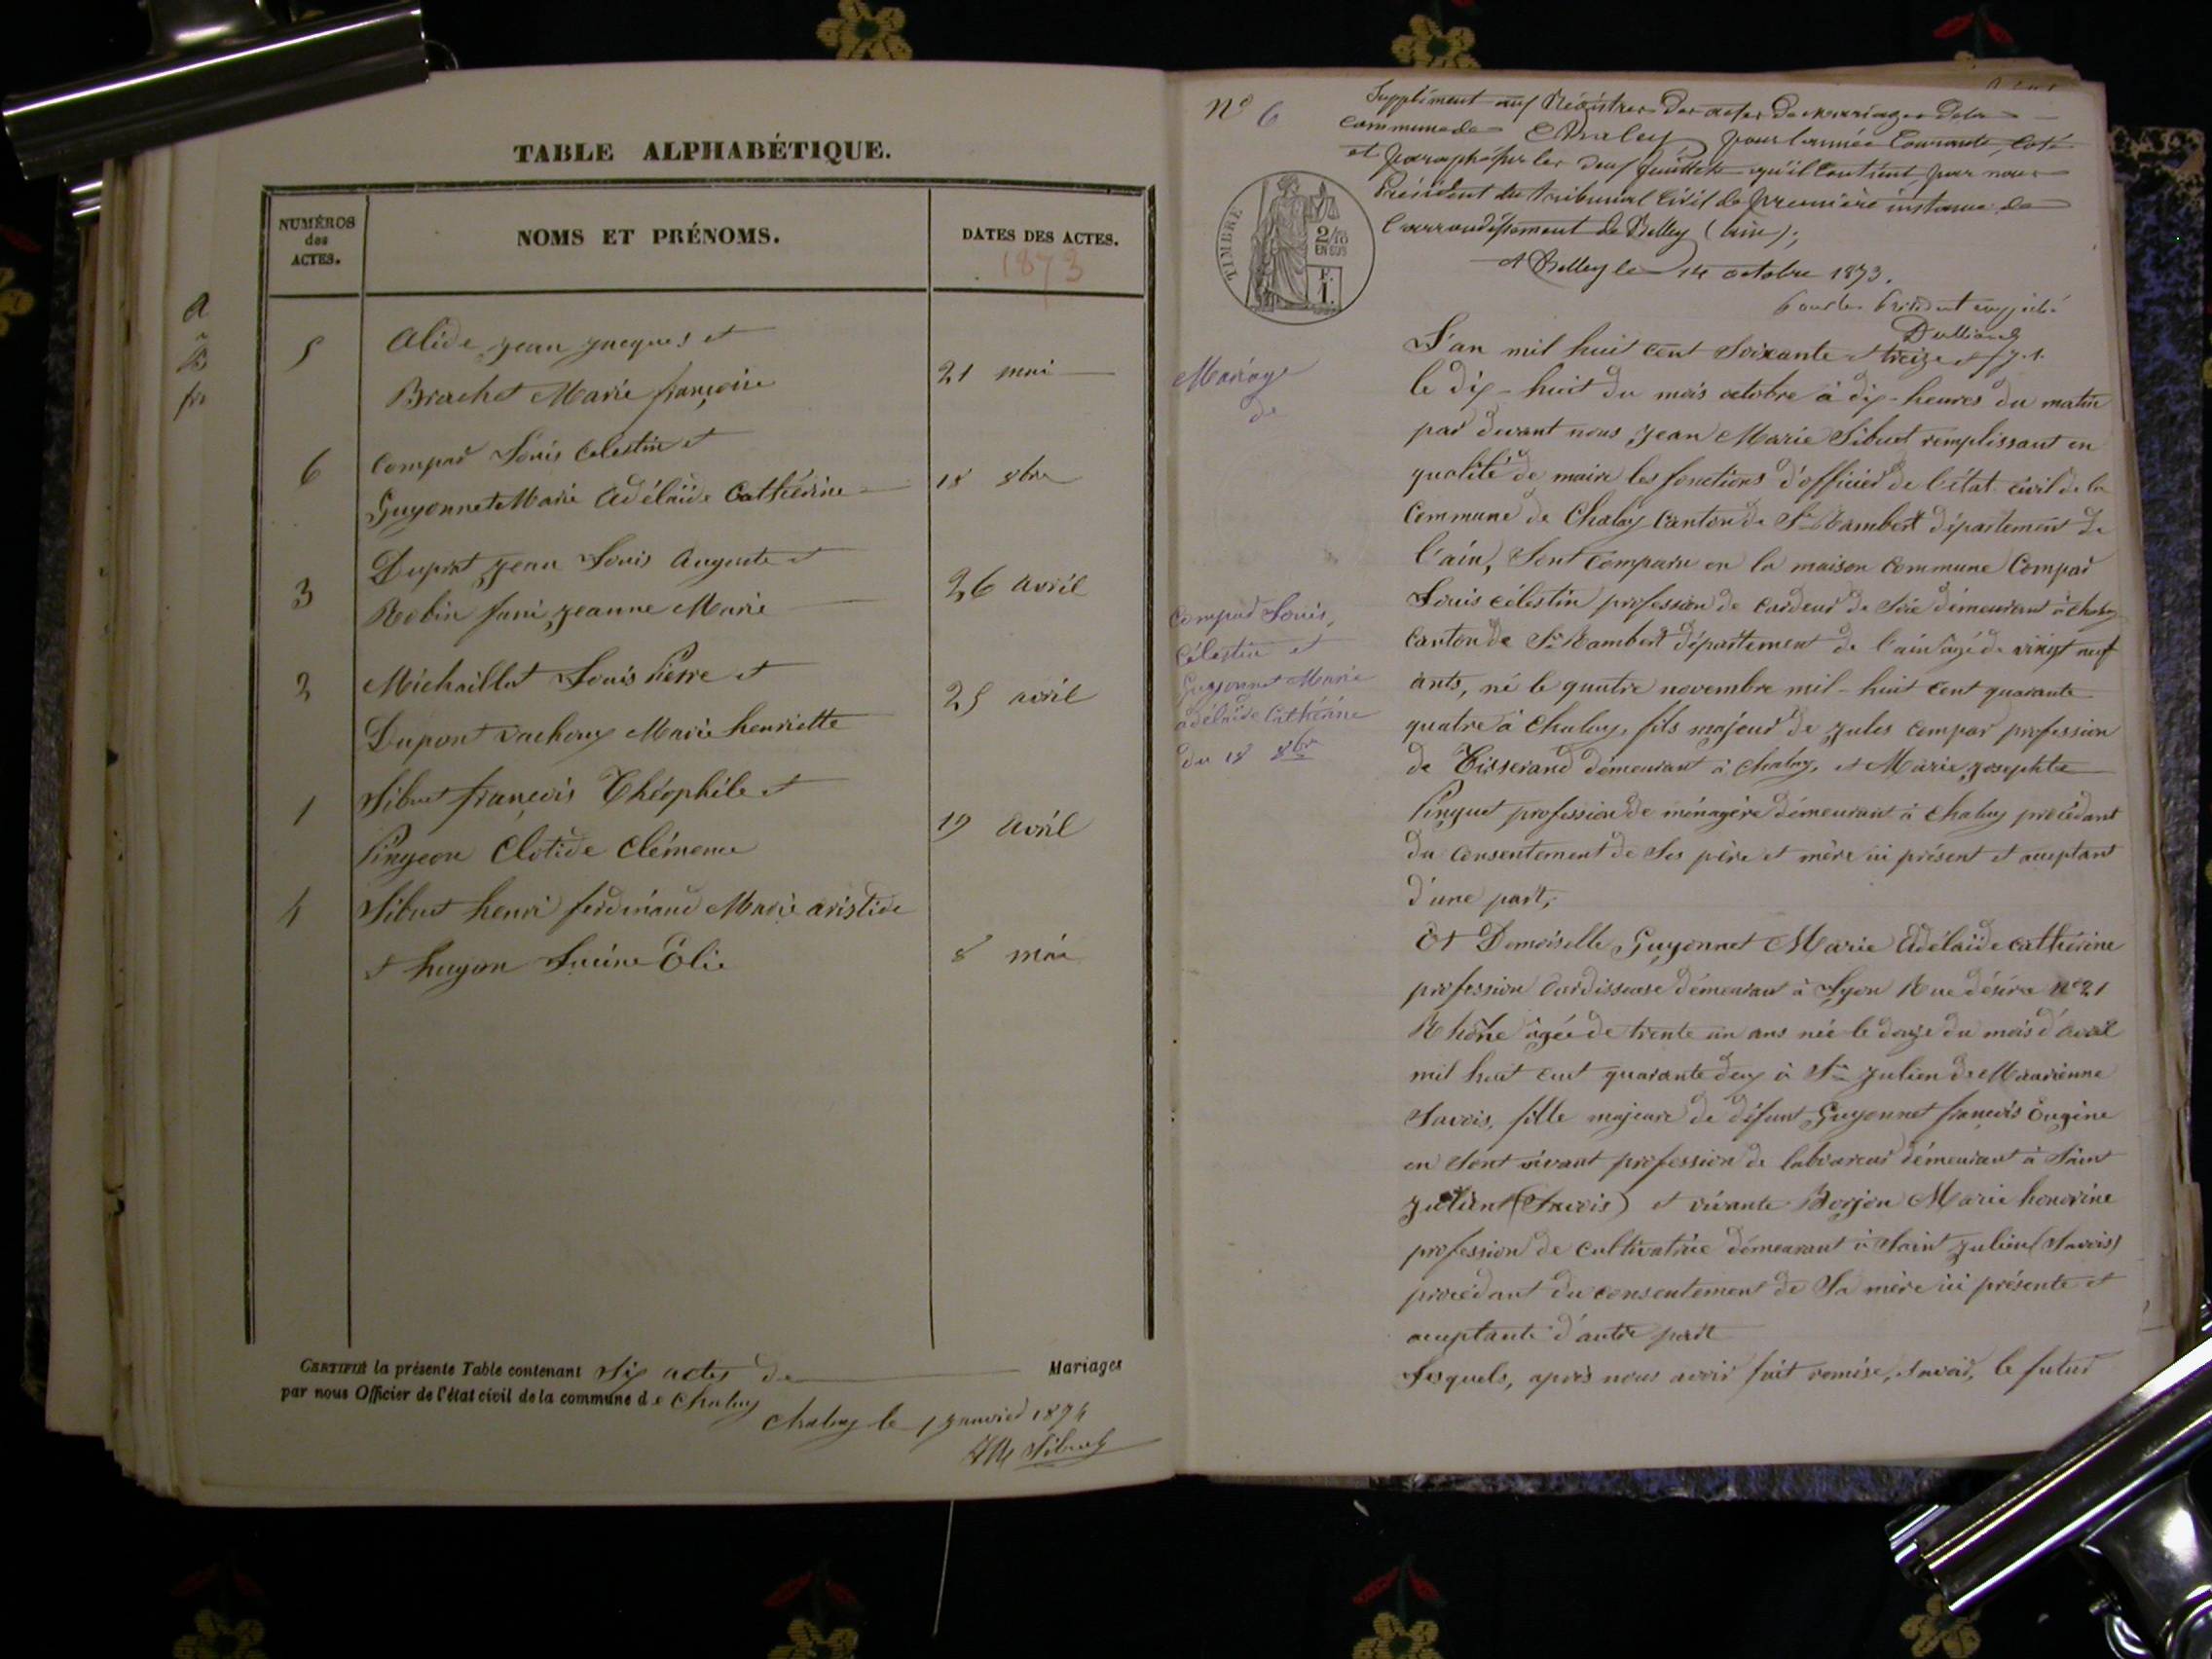 TABLE ALPHABÉTIQUE.
NUMÉROS
des
ACTES.
NOMS ET PRÉNOMS.
DATES DES ACTES.
1873
5
Alide jean jacques et
Brachet Marie françoise
21 mai
6
Compar Louis Celestin et
Guyonnet Marie Adélaïde Cathérine
18 8bre
3
Duprat jean Louis Auguste et
Robin fani jeanne Marie
26 avril
2
Michaillat Louis Pierre et
Dupont Marie henriette
25 avril
1
Sibuet françois Théophile et
Pingeon Clotide Clémence
19 Avril
4
Sibuet henri ferdinand Marie aristide
et hugon Elie
8 mai
CERTIFIÉ la présente Table contenant Six actes de Mariages
par nous Officier de l'état civil de la commune de Chaley
Chaley le 1 janvier 1874
JM Sibuet
N° 6
Supplément aux Régistres des actes de mariages de la
commune de Chaley pour l'année courante, coté
et paraphé sur les deux feuillets qu'il contient par nous
Président du tribunal civil de première instance de
l'arrondissement de Belley (Ain);
A Belley le 14 octobre 1873.
Pour le Président empêché
TIMBRE
2/10
EN SUS
F.
1.
Mariage
de
Compar Louis,
Célestin et
Guyonnet Marie
adélaïde Cathérine
du 18 8bre
L'an mil huit cent soixante et treize et
le dix-huit du mois octobre à dix-heures du matin
par devant nous jean Marie Sibuet remplissant en
qualité de maire les fonctions d'officier de l'état civil de la
Commune de Chaley Canton de St Rambert département de
l'ain, Sont comparu en la maison commune Compar
Louis célestin profession de cardeur de soie démeurant à chaley
Canton de St Rambert département de l'ain âgé de vingt neuf
ants, né le quatre novembre mil-huit cent quarante
quatre à Chaley, fils majeur de jules compar profession
de Tisserand démeurant à Chaley, et Marie josephte
Pinguet profession de ménagère démeurant à Chaley procédant
du consentement de ses père et mère ici présent et acceptant
d'une part,
Et Demoiselle Guyonnet Marie Adélaïde cathérine
profession Ourdisseuse démeurant à Lyon Rue désirée N° 21
Rhône âgée de trente un ans née le douze du mois d'avril
mil huit cent quarante deux à St julien de Maurienne
Savois, fille majeure de défunt Guyonnet françois Eugène
en sont vivant profession de laboureur démeurant à Saint
julien (Savois) et vivante Borjon Marie honorine
profession de cultivatrice démeurant à Saint julien (Savois)
procédant du consentement de Sa mère ici présente et
acceptante d'autre part
Lesquels, après nous avoir fait remise, savoir, le futur